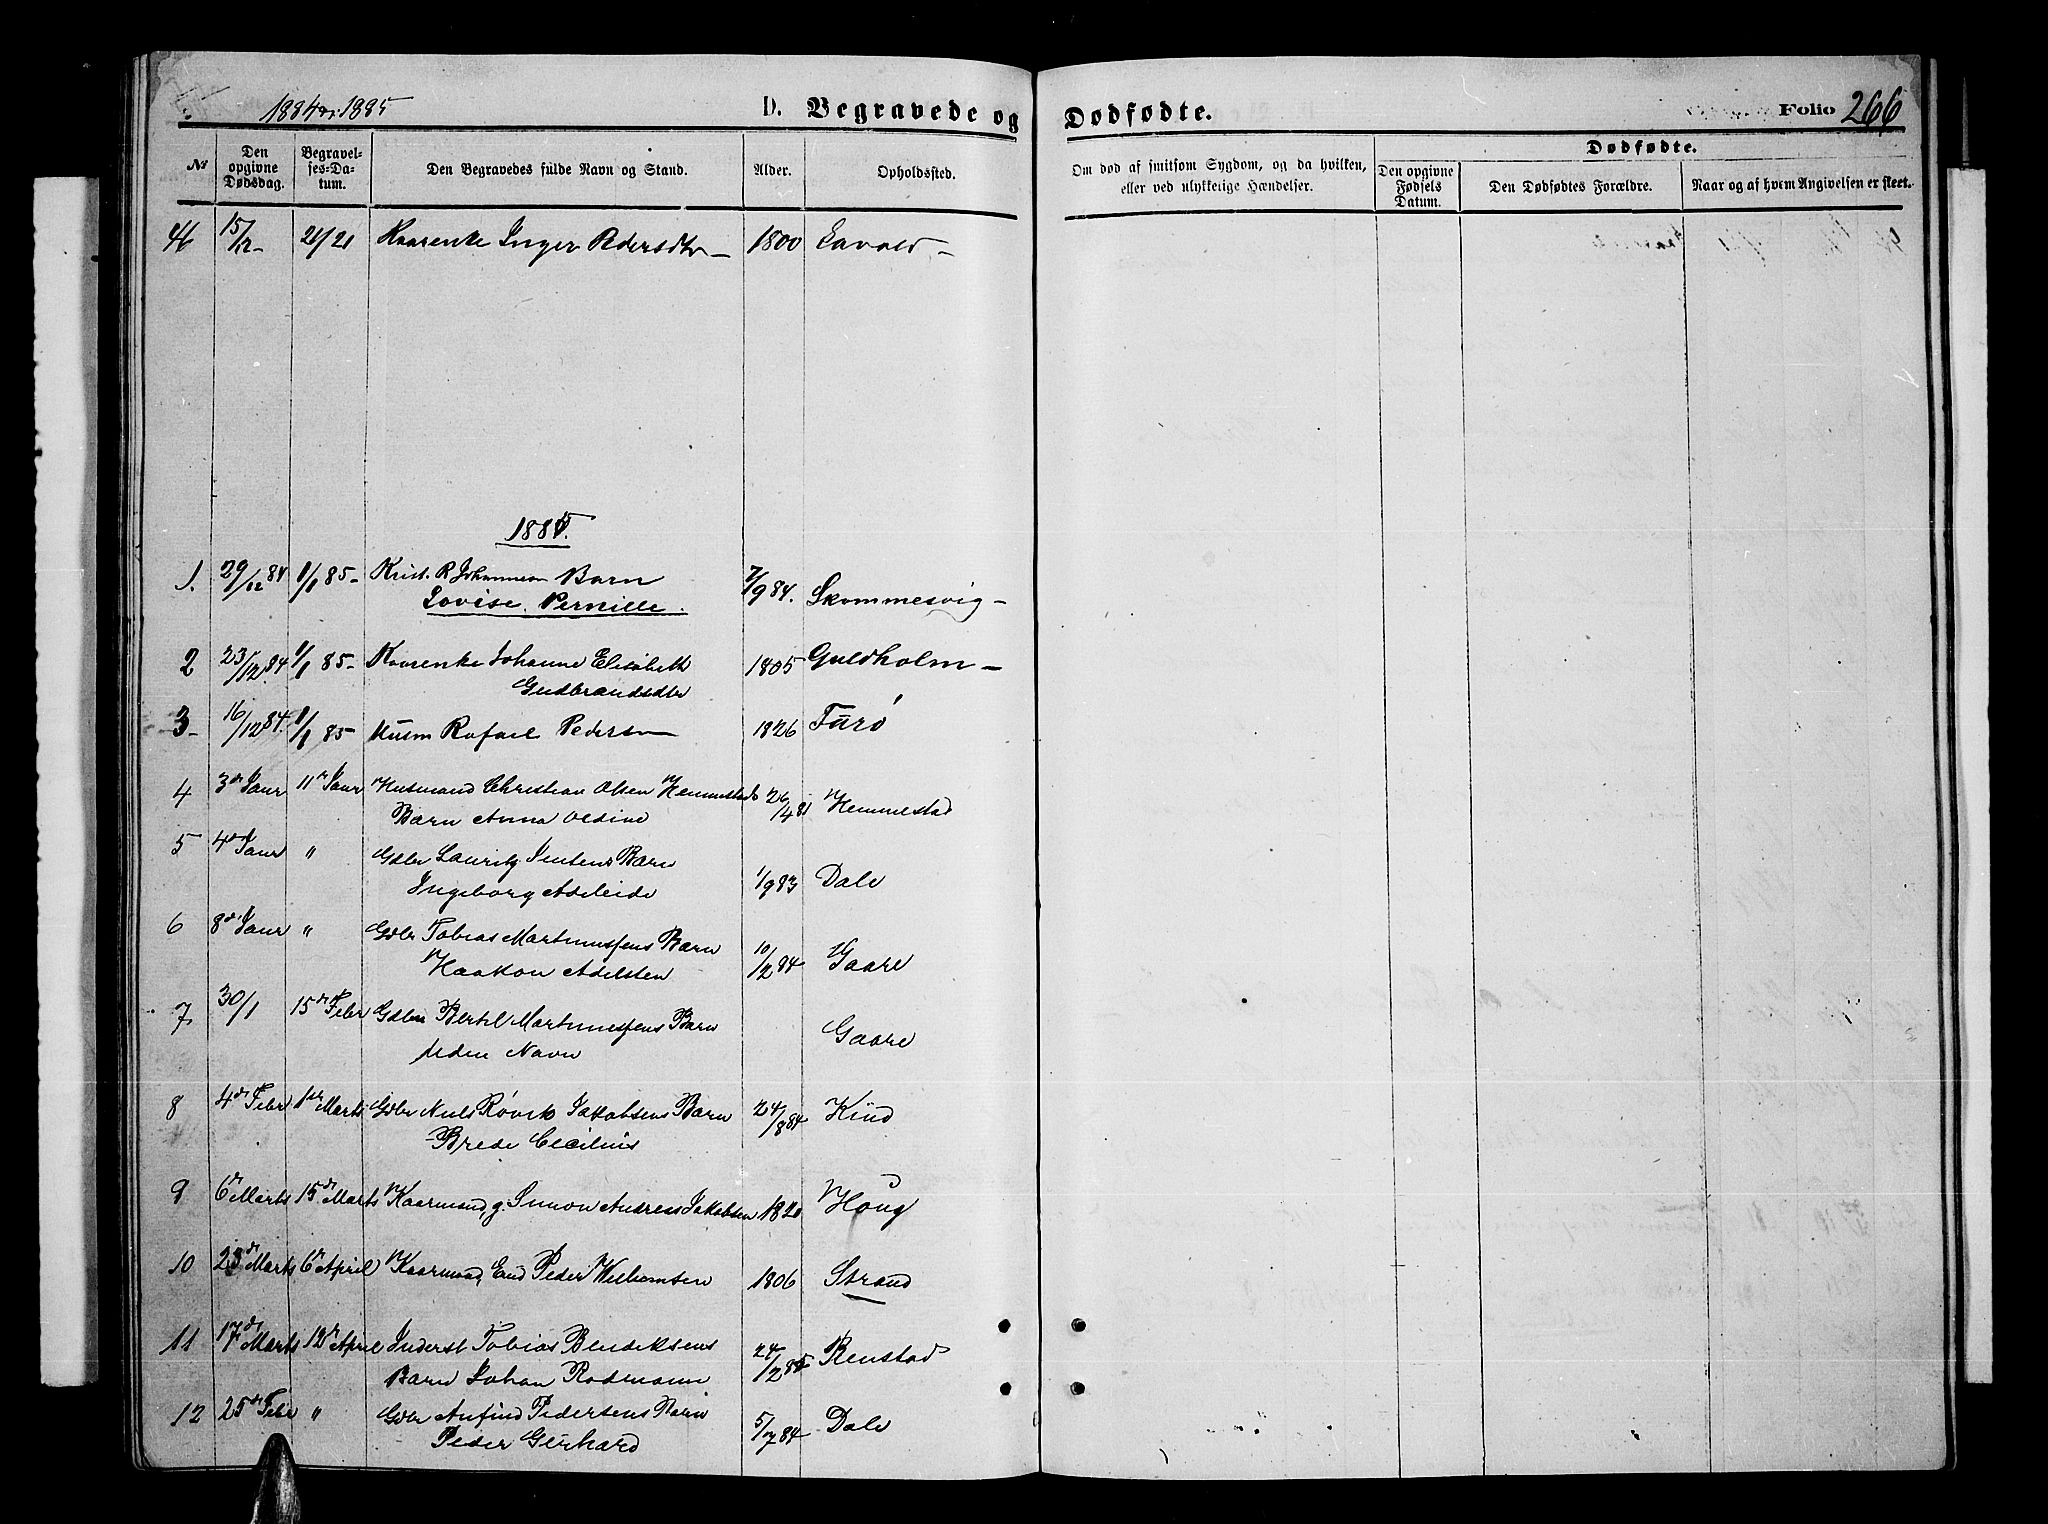 1884 og 1885
D. Begravede og Dødfødte.
Folio 266
No
Den opgivne Dødsdag.
Begravelses-Datum.
Den Begravedes fulde Navn og Stand.
Alder.
Opholdssted.
Om død af smitsom Sygdom, og da hvilken, eller ved ulykkelige Hændelser.
Dødfødte.
Den opgivne Fødsels Datum.
Den Dødfødtes Forældre.
Naar og af hvem Angivelsen er skeet.
15/12 - 21/21 Kaarenke Inger Pedersdtr - 1800 -
1885.
1. 29/12 84 1/1 85 - Krist. R Johannesen Barn
Lovise Pernille. 7/9 84. Skommesvig -
2 23/12 84 1/1 85 - Kaarenke Johanne Elisabeth 1805 Guldholm -
Gudbrandsdtr
3 - 16/12 84. 1/1 85 - Husm Rafael Pedersen 1826 Turø
4 3de Janr 11te Janr Husmand Christian Olsen Hemmestads 26/4 81 Hemmestad
Barn Anna Oldine
5 4de Janr " Gdbr Lauritz Jentens Barn
Ingeborg Adeleide 1/9 83 Dale
6 8de Janr " Gdbr Tobias Martinussens Barn
Haakon Adelsten 10/2 84 Gaare
7 30/1 15de Febr Gdbr Bertel Martinussens Barn
Uden Navn Gaare
8 4de Febr 1ste Marts Gdbr Niels Røvik Jakobsens Barn 24/8 84 Kind
Brede Cecilius
9 6de Marts 15de Marts Kaarmand, g. Simon Andreas Jakobsen 1820 Houg
10 23de Marts 6te April Kaarmand, Enk Peder Wilhemsen 1806 Strand
11 17de Marts 12te April Inderst Tobias Bendiksens
Barn Johan Rodemann 24/2 85 Renstad
12 25de Febr " Gdbr Anfind Pedersens Barn
Peder Gerhard 5/7 84 Dale